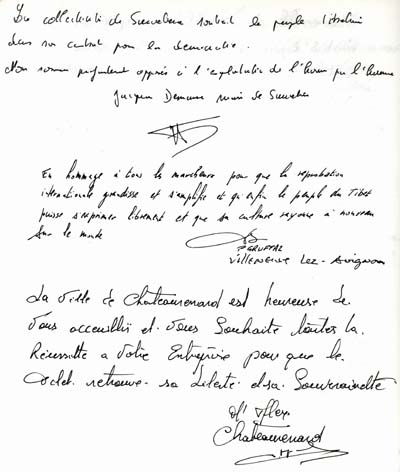 La collectivité de        soutient le peuple tibétain
dans son combat pour la démocratie.
Nous sommes profondément opposés à l'exploitation de l'homme par l'homme
Jacques        maire de
En hommage à tous les marcheurs pour que la réprobation
internationale grandisse et s'amplifie et qu'enfin le peuple du Tibet
puisse s'exprimer librement et que sa culture rayonne à nouveau
sur le monde
VILLENEUVE LEZ-Avignon
La Ville de Chateaurenard est heureuse de
Vous accueillir et Vous Souhaite toutes la
Réussite a Votre Entreprise pour que le
retrouve sa Liberté et sa Souveraineté
Chateaurenard